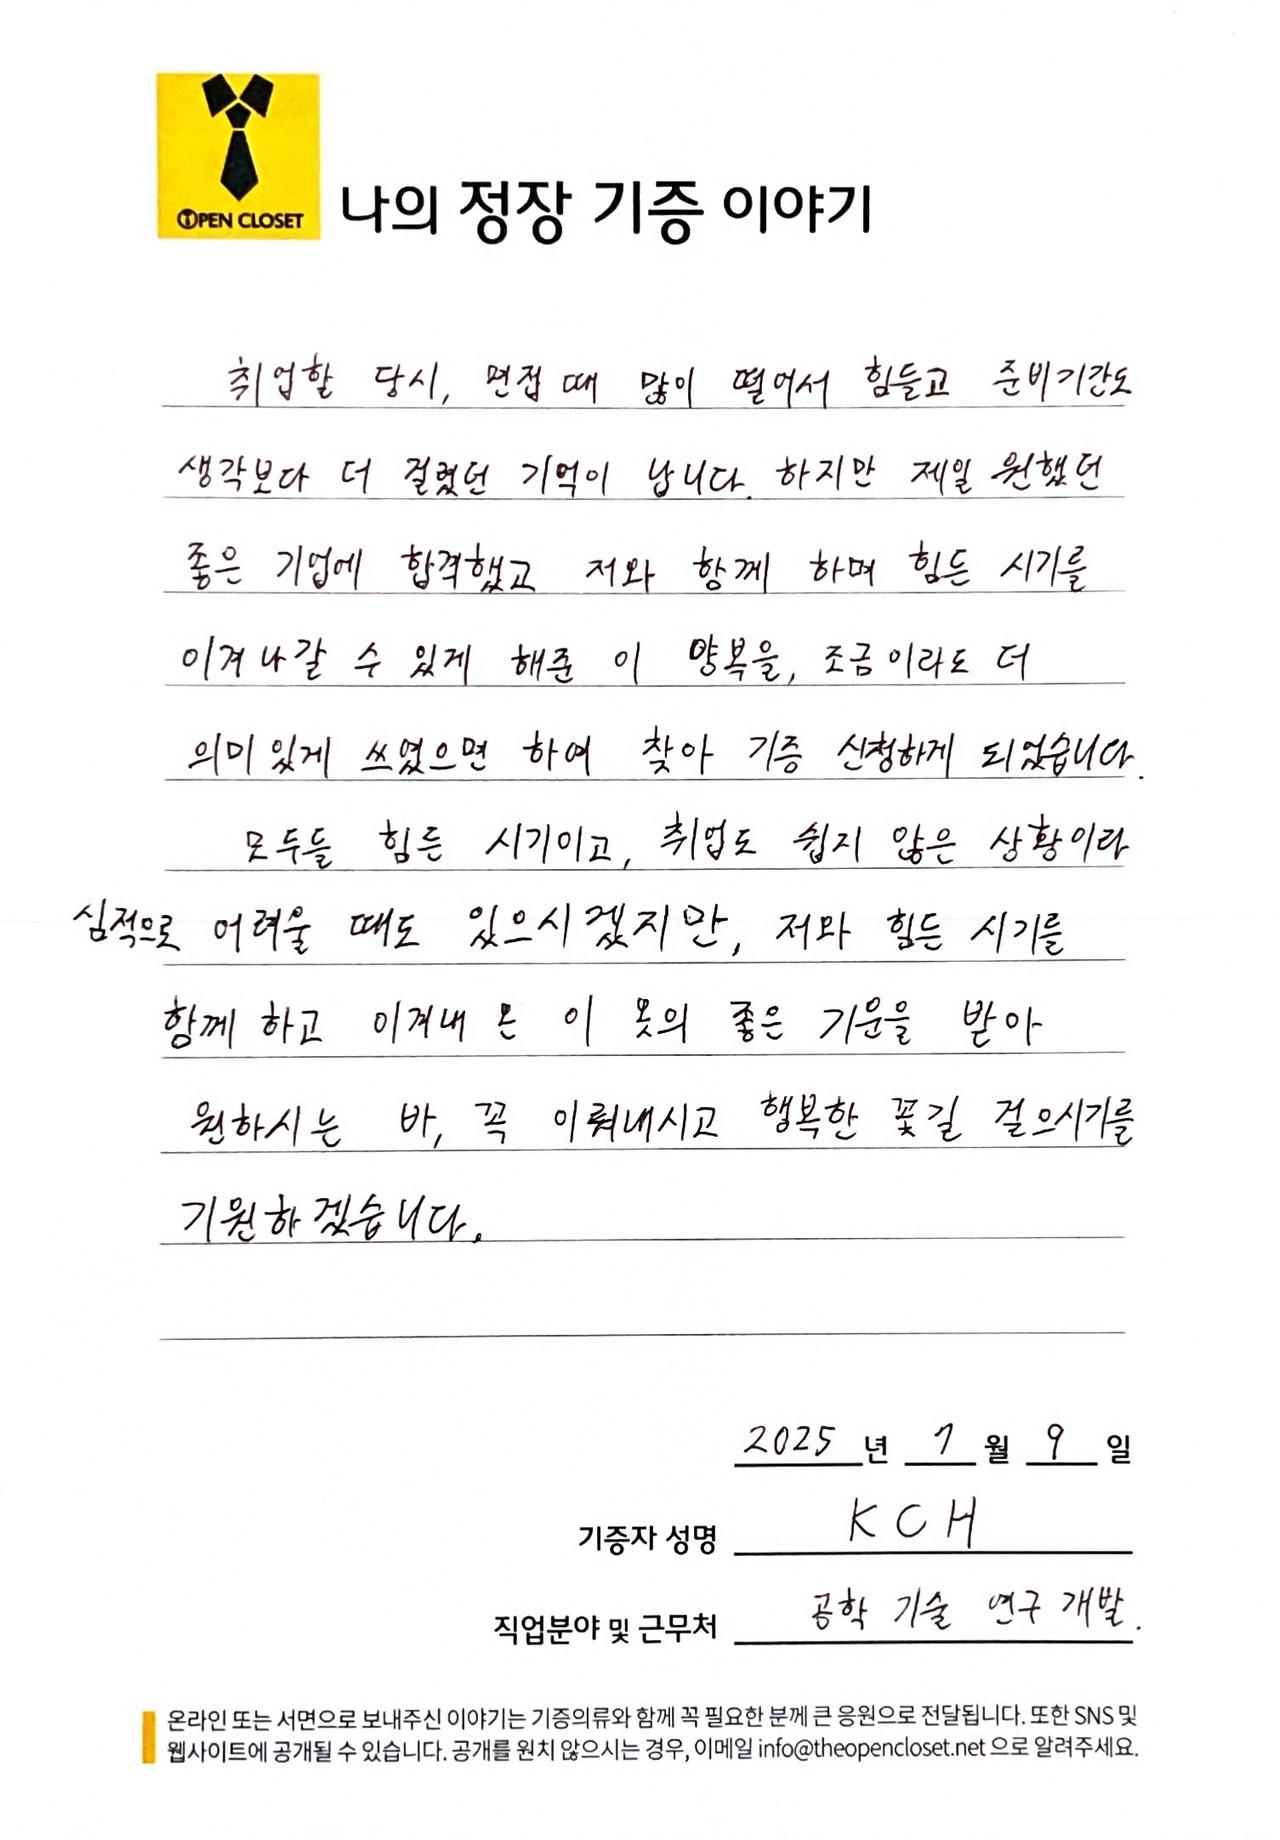 OPEN CLOSET
나의 정장 기증 이야기
취업할 당시, 면접 때 많이 떨어서 힘들고 준비기간도
생각보다 더 걸렸던 기억이 납니다. 하지만 제일 원했던
좋은 기업에 합격했고 저와 함께 하며 힘든 시기를
이겨나갈 수 있게 해준 이 양복을, 조금이라도 더
의미있게 쓰였으면 하여 찾아 기증 신청하게 되었습니다.
모두들 힘든 시기이고, 취업도 쉽지 않은 상황이라
심적으로 어려울 때도 있으시겠지만, 저와 힘든 시기를
함께 하고 이겨내 온 이 옷의 좋은 기운을 받아
원하시는 바, 꼭 이뤄내시고 행복한 꽃길 걸으시기를
기원하겠습니다.
2025 년 7 월 9 일
기증자 성명 KCH
직업분야 및 근무처 공학 기술 연구 개발.
온라인 또는 서면으로 보내주신 이야기는 기증의류와 함께 꼭 필요한 분께 큰 응원으로 전달됩니다. 또한 SNS 및
웹사이트에 공개될 수 있습니다. 공개를 원치 않으시는 경우, 이메일 info@theopencloset.net 으로 알려주세요.